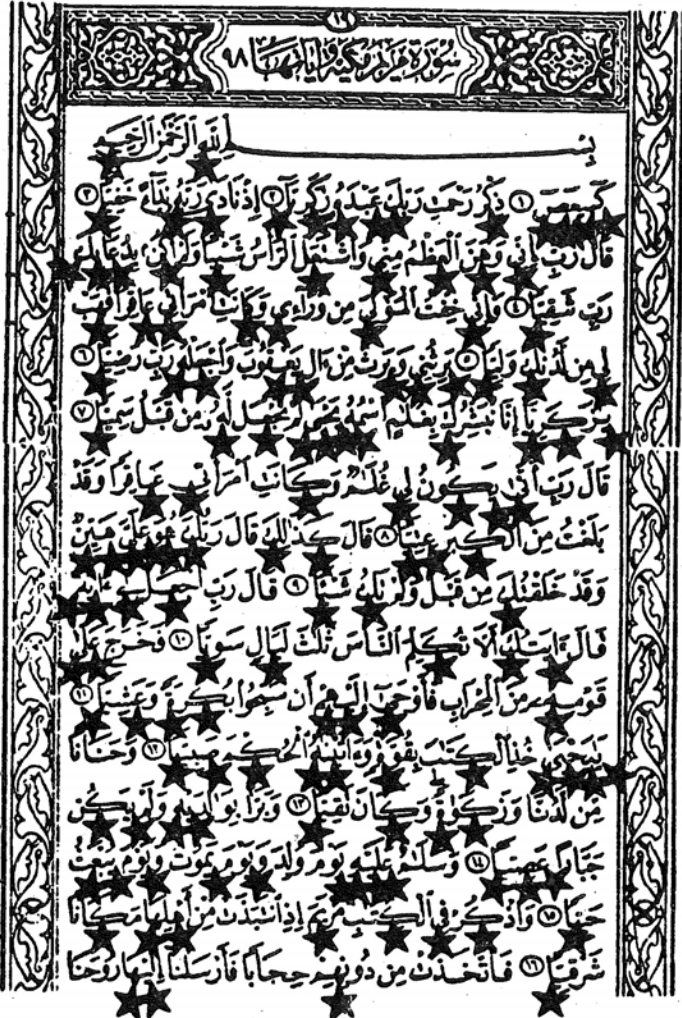 سُورَةُ مَرْيَمَ مَكِّيَّة وَآيَاتُهَا ٩٨
بِسْمِ اللَّهِ الرَّحْمَٰنِ الرَّحِيمِ
كهيعص ١ ذِكْرُ رَحْمَتِ رَبِّكَ عَبْدَهُ زَكَرِيَّا ٢ إِذْ نَادَىٰ رَبَّهُ نِدَاءً خَفِيًّا ٣
قَالَ رَبِّ إِنِّي وَهَنَ الْعَظْمُ مِنِّي وَاشْتَعَلَ الرَّأْسُ شَيْبًا وَلَمْ أَكُنْ بِدُعَائِكَ
رَبِّ شَقِيًّا ٤ وَإِنِّي خِفْتُ الْمَوَالِيَ مِنْ وَرَاءِي وَكَانَتِ امْرَأَتِي عَاقِرًا فَهَبْ
لِي مِنْ لَدُنْكَ وَلِيًّا ٥ يَرِثُنِي وَيَرِثُ مِنْ آلِ يَعْقُوبَ وَاجْعَلْهُ رَبِّ رَضِيًّا ٦
يَا زَكَرِيَّا إِنَّا نُبَشِّرُكَ بِغُلَامٍ اسْمُهُ يَحْيَىٰ لَمْ نَجْعَلْ لَهُ مِنْ قَبْلُ سَمِيًّا ٧
قَالَ رَبِّ أَنَّىٰ يَكُونُ لِي غُلَامٌ وَكَانَتِ امْرَأَتِي عَاقِرًا وَقَدْ
بَلَغْتُ مِنَ الْكِبَرِ عِتِيًّا ٨ قَالَ كَذَٰلِكَ قَالَ رَبُّكَ هُوَ عَلَيَّ هَيِّنٌ
وَقَدْ خَلَقْتُكَ مِنْ قَبْلُ وَلَمْ تَكُ شَيْئًا ٩ قَالَ رَبِّ اجْعَلْ لِي آيَةً
قَالَ آيَتُكَ أَلَّا تُكَلِّمَ النَّاسَ ثَلَٰثَ لَيَالٍ سَوِيًّا ١٠ فَخَرَجَ عَلَىٰ
قَوْمِهِ مِنَ الْمِحْرَابِ فَأَوْحَىٰ إِلَيْهِمْ أَنْ سَبِّحُوا بُكْرَةً وَعَشِيًّا ١١
يَٰيَحْيَىٰ خُذِ الْكِتَٰبَ بِقُوَّةٍ وَءَاتَيْنَٰهُ الْحُكْمَ صَبِيًّا ١٢ وَحَنَانًا
مِنْ لَدُنَّا وَزَكَوٰةً وَكَانَ تَقِيًّا ١٣ وَبَرًّا بِوَالِدَيْهِ وَلَمْ يَكُنْ
جَبَّارًا عَصِيًّا ١٤ وَسَلَٰمٌ عَلَيْهِ يَوْمَ وُلِدَ وَيَوْمَ يَمُوتُ وَيَوْمَ يُبْعَثُ
حَيًّا ١٥ وَاذْكُرْ فِي الْكِتَٰبِ مَرْيَمَ إِذِ انْتَبَذَتْ مِنْ أَهْلِهَا مَكَانًا
شَرْقِيًّا ١٦ فَاتَّخَذَتْ مِنْ دُونِهِمْ حِجَابًا فَأَرْسَلْنَا إِلَيْهَا رُوحَنَا